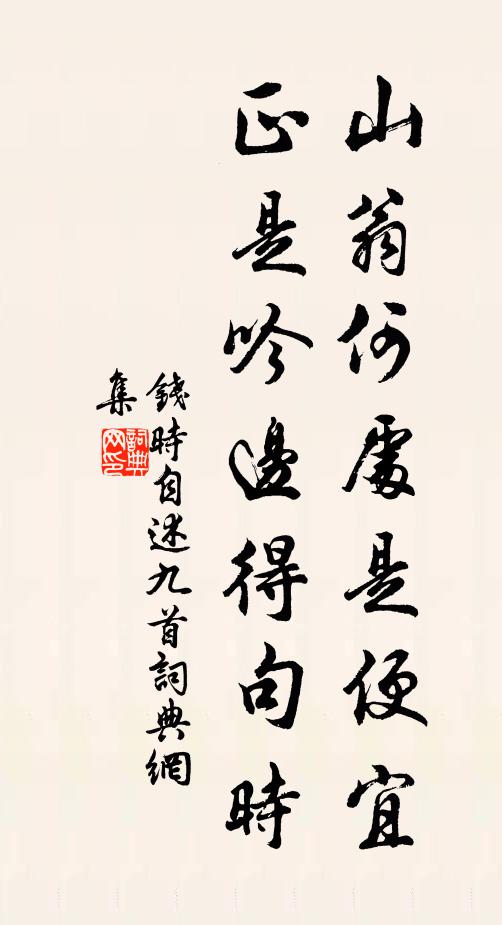 山翁何處是便宜
正是吟邊得句時
錢時自述九首詞典網
集
詞典網印